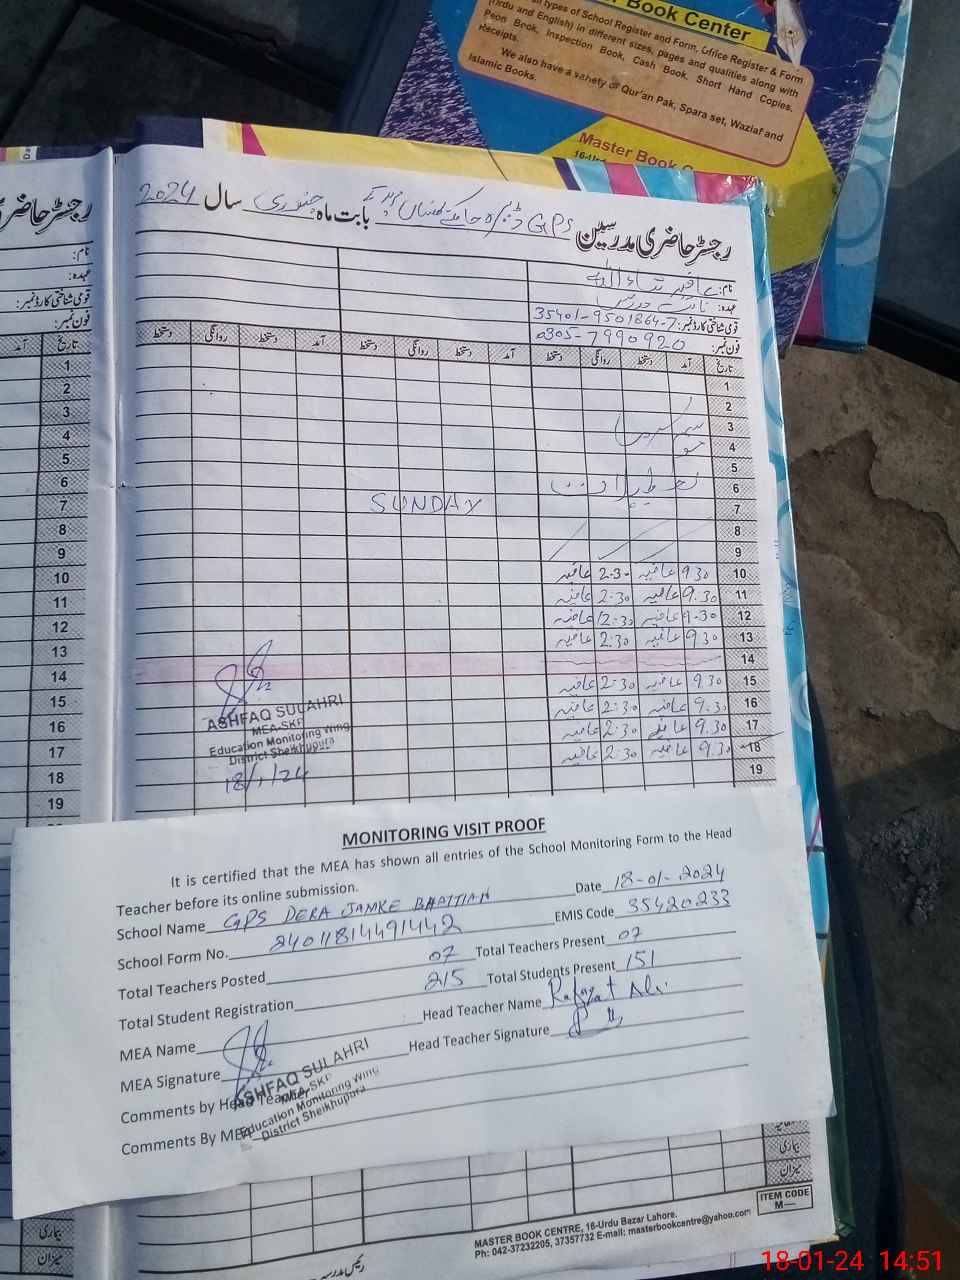 Book Center
all types of School Register and Form, Office Register & Form
(Urdu and English) in different sizes, pages and qualities along with
Peon Book, Inspection Book, Cash Book, Short Hand Copies,
Receipts.
We also have a variety of Qur'an Pak, Spara set, Waziaf and
Islamic Books.
Master Book
رجسٹر حاضری مدرسین GPS بابت ماہ جنوری سال 2024
نام:
عہدہ:
قومی شناختی کارڈ نمبر: 35401-9501864-7
فون نمبر: 0305-7990920
تاریخ آمد دستخط روانگی دستخط آمد دستخط روانگی دستخط آمد دستخط روانگی دستخط
1
2
3
4
5
6
7 SUNDAY
8
9
10 9.30 عافیہ 2.30 عافیہ
11 9.30 عافیہ 2.30 عافیہ
12 9.30 عافیہ 2.30 عافیہ
13 9.30 عافیہ 2.30 عافیہ
14
15 9.30 عافیہ 2.30 عافیہ
16 9.30 عافیہ 2.30 عافیہ
17 9.30 عافیہ 2.30 عافیہ
18 9.30 عافیہ 2.30 عافیہ
19
ASHFAQ SULAHRI
MEA-SKP
Education Monitoring Wing
District Sheikhupura
18/1/24
رجسٹر حاضری
نام:
عہدہ:
قومی شناختی کارڈ نمبر:
فون نمبر:
تاریخ آمد
1
2
3
4
5
6
7
8
9
10
11
12
13
14
15
16
17
18
19
MONITORING VISIT PROOF
It is certified that the MEA has shown all entries of the School Monitoring Form to the Head
Teacher before its online submission.
School Name GPS DERA JAMKE BHATTIAN Date 18-01-2024
School Form No. 24011814491442 EMIS Code 35420233
Total Teachers Posted 07 Total Teachers Present 07
Total Student Registration 215 Total Students Present 151
MEA Name Head Teacher Name Rafaqat Ali
MEA Signature Head Teacher Signature
Comments by Head Teacher
Comments By MEA
ASHFAQ SULAHRI
MEA-SKP
Education Monitoring Wing
District Sheikhupura
بیماری
میزان
بیماری
میزان
ITEM CODE
M—
MASTER BOOK CENTRE, 16-Urdu Bazar Lahore.
Ph: 042-37232205, 37357732 E-mail: masterbookcentre@yahoo.com
18-01-24 14:51